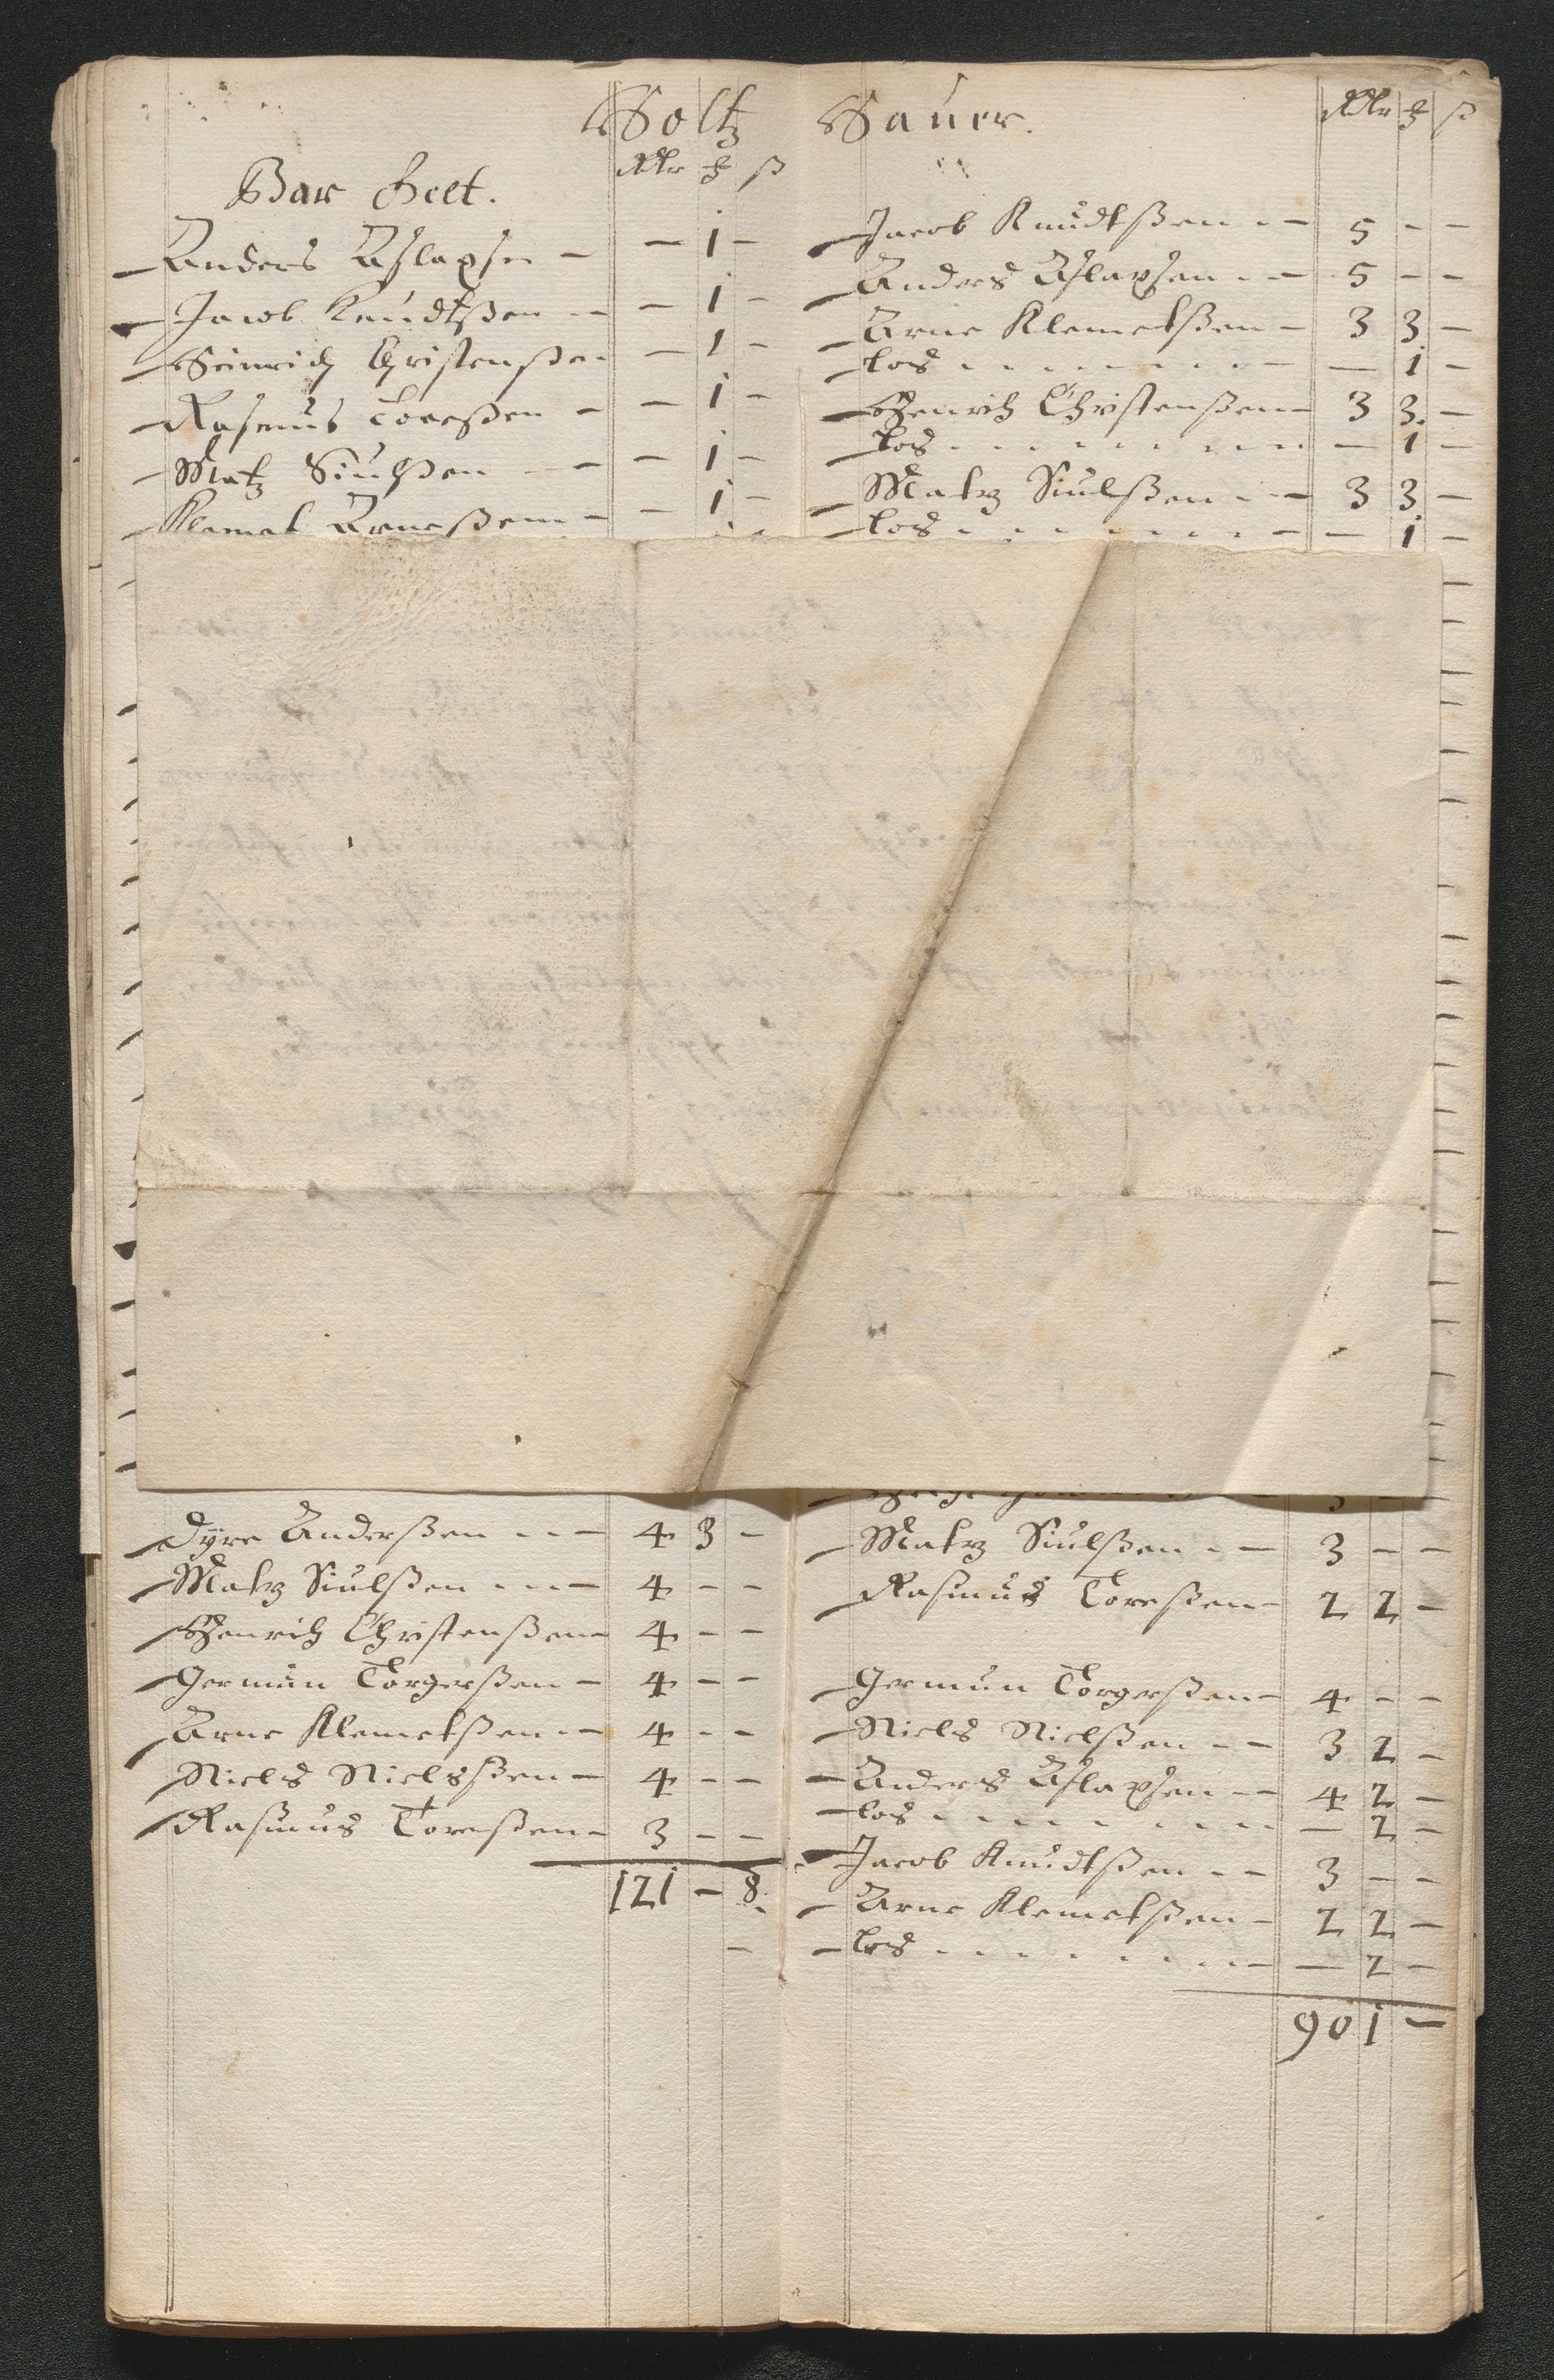 Holtz Hauer.
Rdlr ß
Bar Gelt.
Rdlr ß
Anders Aslaxsen - - 1 -
Jacob Knudtßen - - 1 -
Heinrich Christenßen - 1 -
Rasmus Toreßen - - 1 -
Matz Siulßen - - 1 -
Klemet Arneßen - - 1 -
Dÿre Anderßen - - 4 3 -
Matz Siulßen - - - 4 - -
Henrich Christenßen 4 - -
Germun Torgerßen - 4 - -
Arne Klemetßen - - 4 - -
Niels Nielsßen - 4 - -
Rasmus Torreßen - 3 - -
121 - 8.
Jacob Knudtßen - - 5 - -
Anders Aslaxsen - - 5 - -
Arne Klemetßen - 3 3 -
los - - - - - - - - - 1 -
Henrich Christenßen 3 3. -
los - - - - - - - - - 1 -
Matz Siulßen - - 3 3 -
los - - - - - - - - - 1 -
Matz Siulßen - - 3 - -
Rasmus Torreßen - 2 2 -
Germun Torgerßen - 4 - -
Niels Nielßen - - 3 2 -
Anders Aslaxsen - - 4 2 -
los - - - - - - - - - 2 -
Jacob Knudtßen - - 3 - -
Arne Klemetßen - 2 2 -
los - - - - - - - - - 2 -
90 1 -